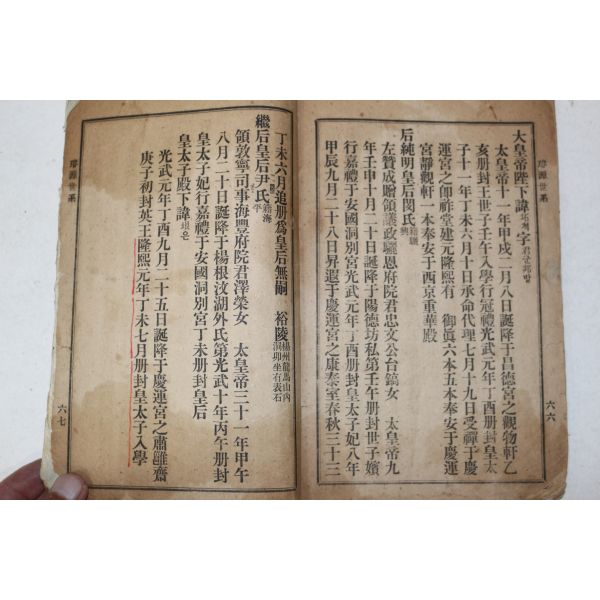 大皇帝陛下諱坧척字君邦군방
太皇帝十一年甲戌二月八日誕降于昌德宮之觀物軒乙
亥册封王世子壬午入學行冠禮光武元年丁酉册封皇太
子十一年丁未六月十日承命代理七月十九日受禪于慶
運宮之卽祚堂建元隆熙有 御眞六本五本奉安于慶運
宮靜觀軒一本奉安于西京重華殿
后純明皇后閔氏籍驪興
左贊成贈領議政驪恩府院君忠文公台鎬女 太皇帝九
年壬申十月二十日誕降于陽德坊私第壬午册封世子嬪
行嘉禮于安國洞別宮光武元年丁酉册封皇太子妃八年
甲辰九月二十八日昇遐于慶運宮之康泰室春秋三十三
六六
璿源世系
丁未六月追册爲皇后無嗣 裕陵楊州龍馬山內洞卯坐有表石
繼后皇后尹氏籍海平
領敦寧司事海豐府院君澤榮女 太皇帝三十一年甲午
八月二十日誕降于楊根汶湖外氏第光武十年丙午册封
皇太子妃行嘉禮于安國洞別宮丁未册封皇后
皇太子殿下諱垠은
光武元年丁酉九月二十五日誕降于慶運宮之肅雝齋
庚子初封英王隆熙元年丁未七月册封皇太子入學
璿源世系
六七